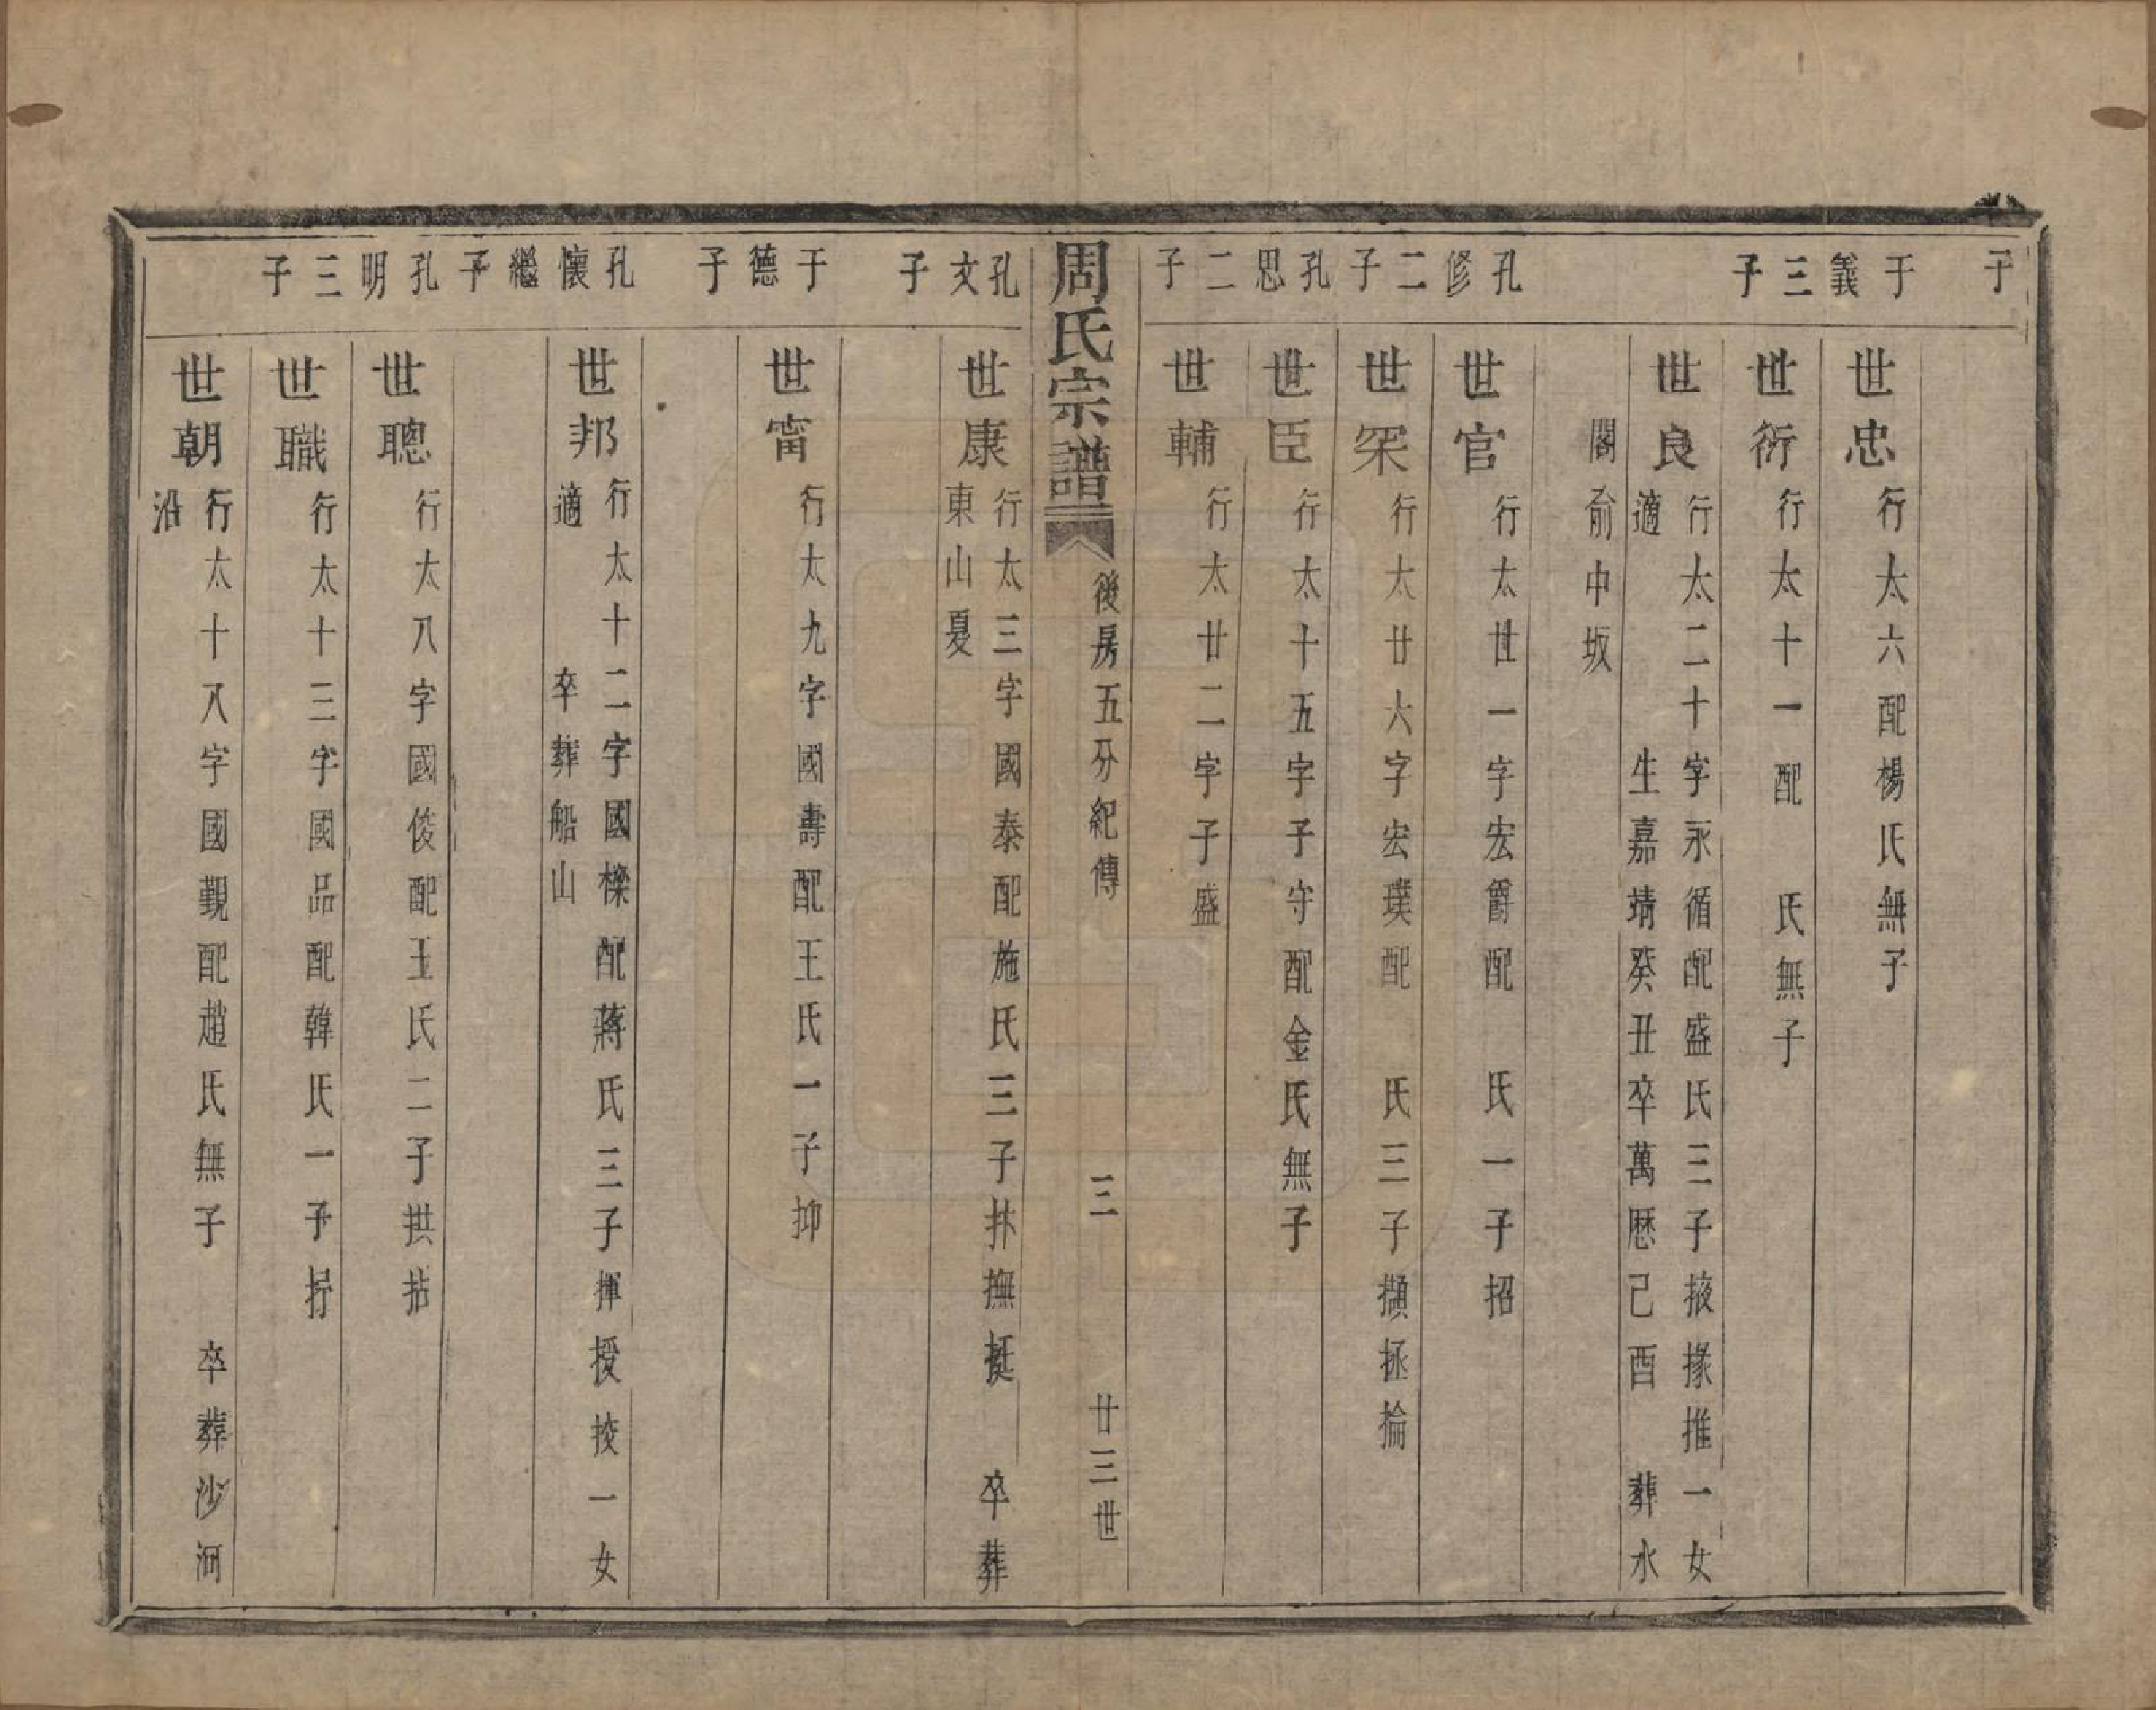 子
于義三子
世忠行太六配楊氏無子
世衍行太十一配　氏無子
世良行太二十字永循配盛氏三子掖掾推一女
適　生嘉靖癸丑卒萬歷己酉　葬水
閣俞中坂
孔修二子
世官行太世一字宏爵配　氏一子招
世罙行太廿六字宏璞配　氏三子擷拯掄
孔思二子
世臣行太十五字子守配金氏無子
世輔行太廿二字子盛
周氏宗譜
後房五分紀傳　三　廿三世
孔文子
世康行太三字國泰配施氏三子扶撫挺　卒葬
東山夏
于德子
世甯行太九字國壽配王氏一子抑
孔懷繼子
世邦行太十二字國樑配蔣氏三子揮授掞一女
適　卒葬船山
孔明三子
世聰行太八字國俊配王氏二子拱拈
世職行太十三字國品配韓氏一子拧
世朝行太十八字國觀配趙氏無子　卒葬沙河
沿